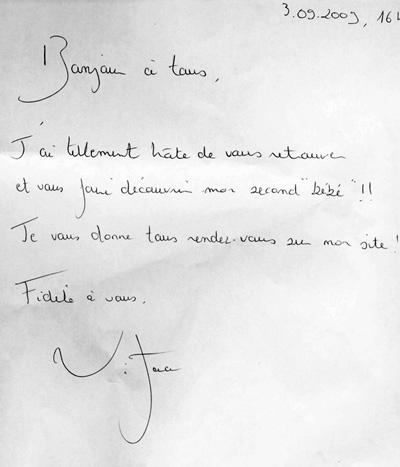 3.09.2009, 16h
Bonjour à tous,
J'ai tellement hâte de vous retrouver
et vous faire découvrir mon second "bébé" !!
Je vous donne tous rendez-vous sur mon site !
Fidèle à vous.